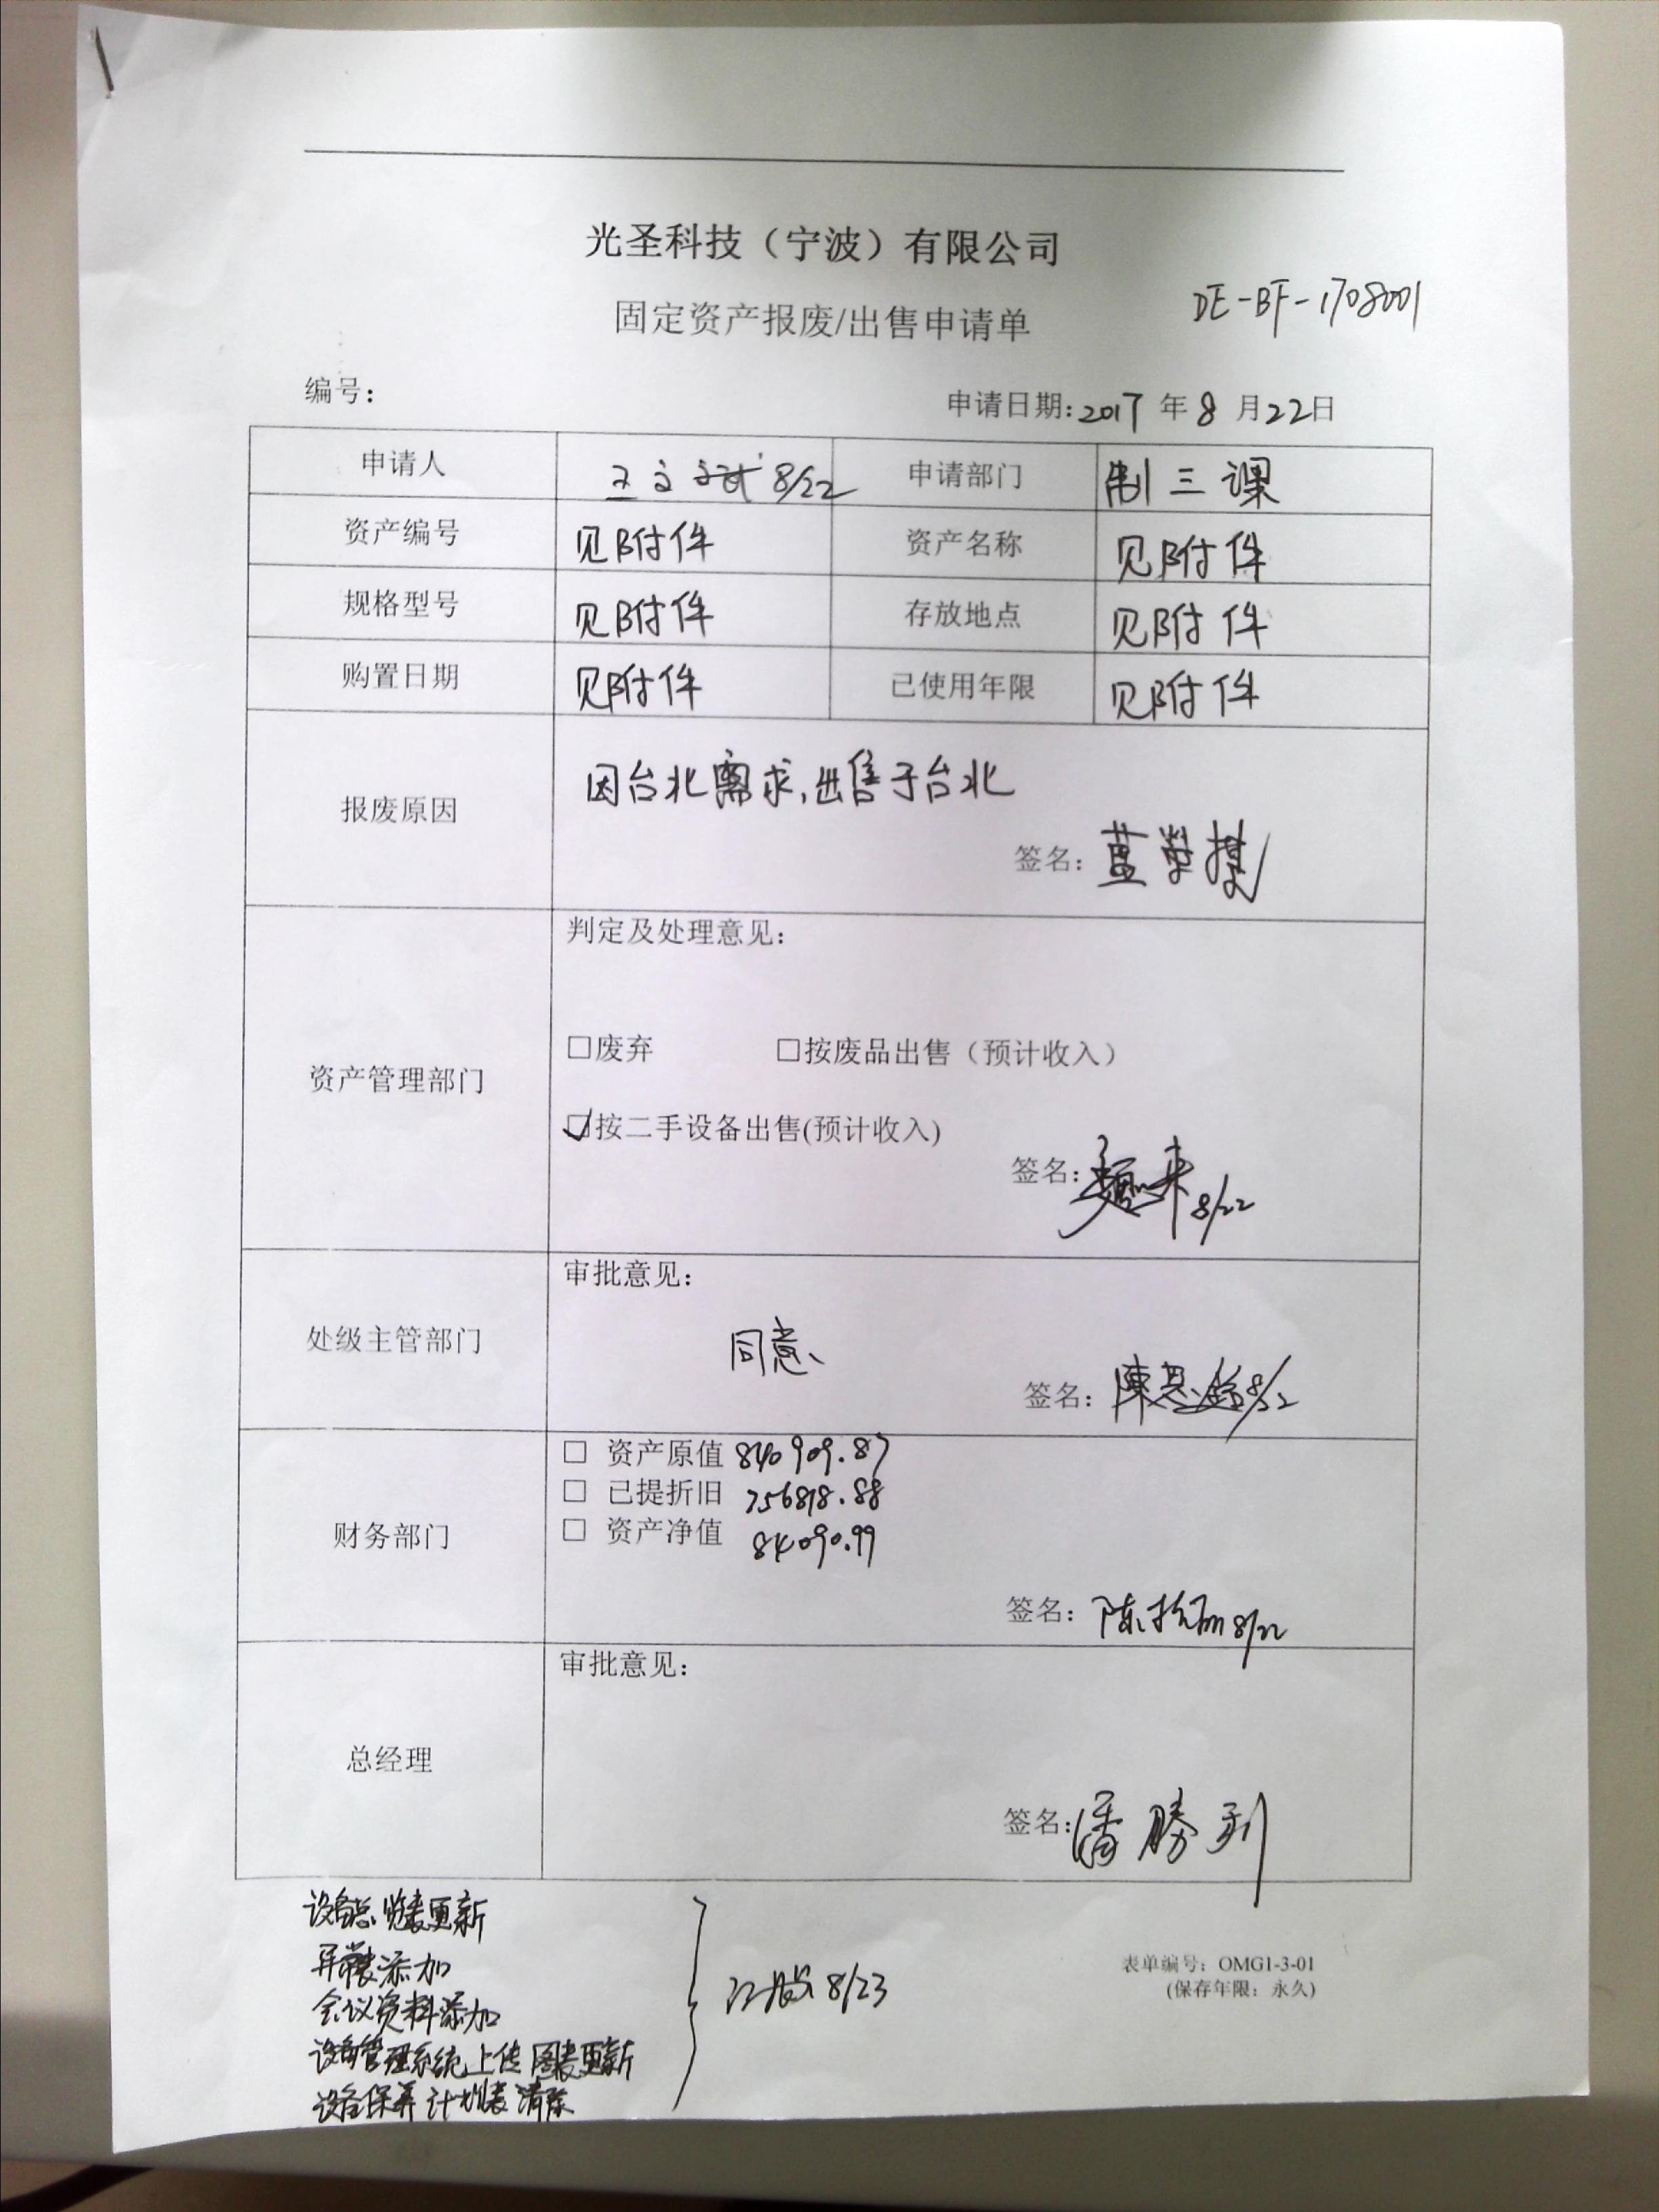 光圣科技（宁波）有限公司
固定资产报废/出售申请单
DE-BF-1708001
编号：
申请日期：2017 年 8 月 22日
申请人 8/22 申请部门 制三课
资产编号 见附件 资产名称 见附件
规格型号 见附件 存放地点 见附件
购置日期 见附件 已使用年限 见附件
报废原因
因台北需求，出售于台北
签名：
资产管理部门
判定及处理意见：
□废弃 □按废品出售（预计收入）
☑按二手设备出售(预计收入)
签名： 8/22
处级主管部门
审批意见：
同意
签名： 8/22
财务部门
□ 资产原值 840909.87
□ 已提折旧 756818.88
□ 资产净值 84090.99
签名： 8/22
总经理
审批意见：
签名：潘勝利
设备总览表更新
异常表添加
会议资料添加
设备管理系统上传 图表更新
设备保养计划表 清除
8/23
表单编号：OMG1-3-01
(保存年限：永久)